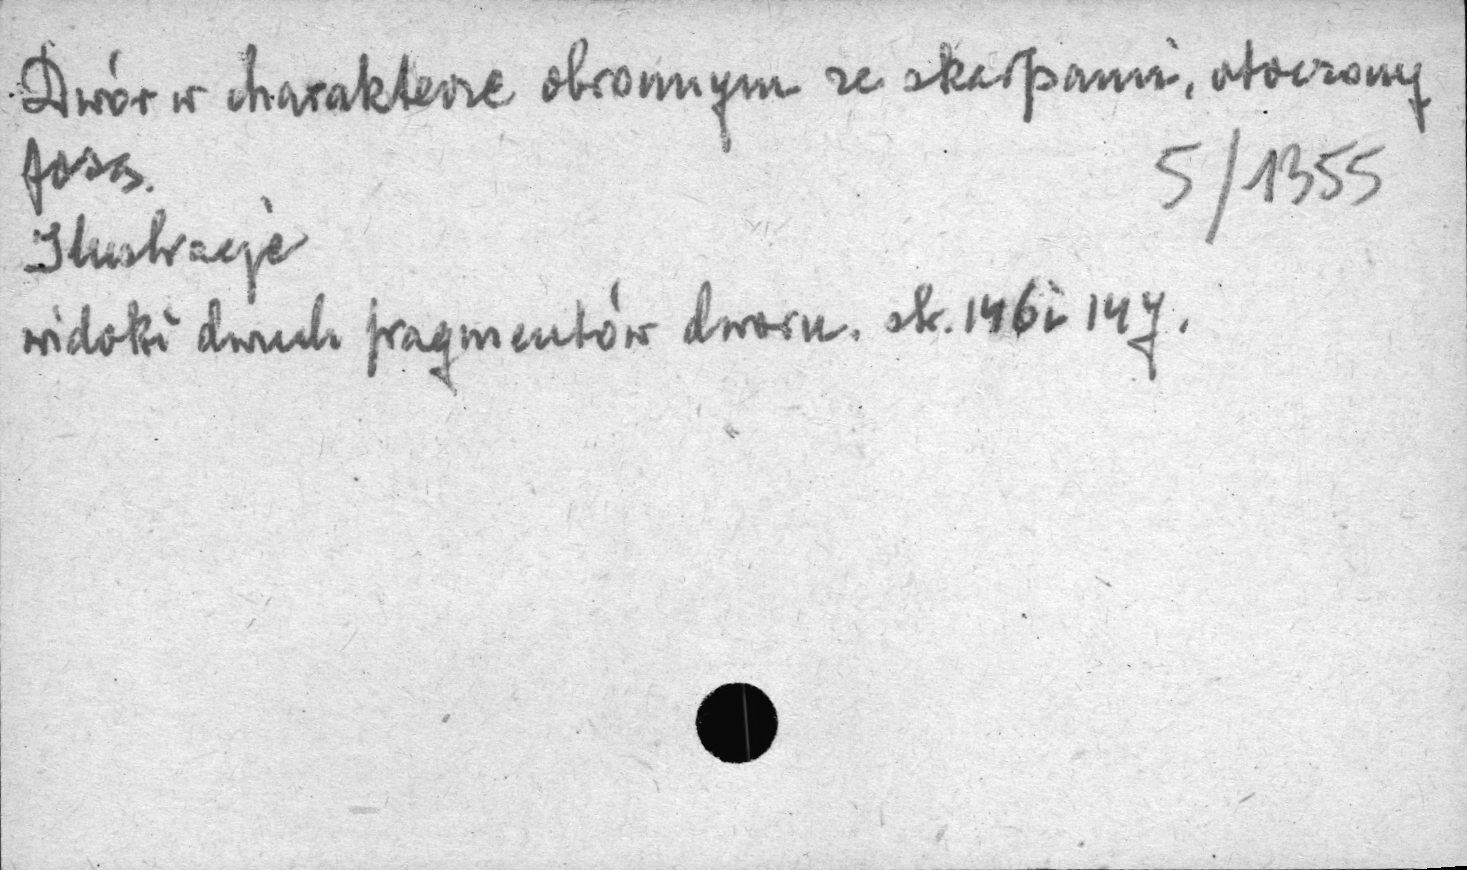 Dwór w charakterze obronnym ze skarpami, otoczony
fosą.
5/1355
Ilustracje
widoki dwuch fragmentów dworu. str. 146 i 147.